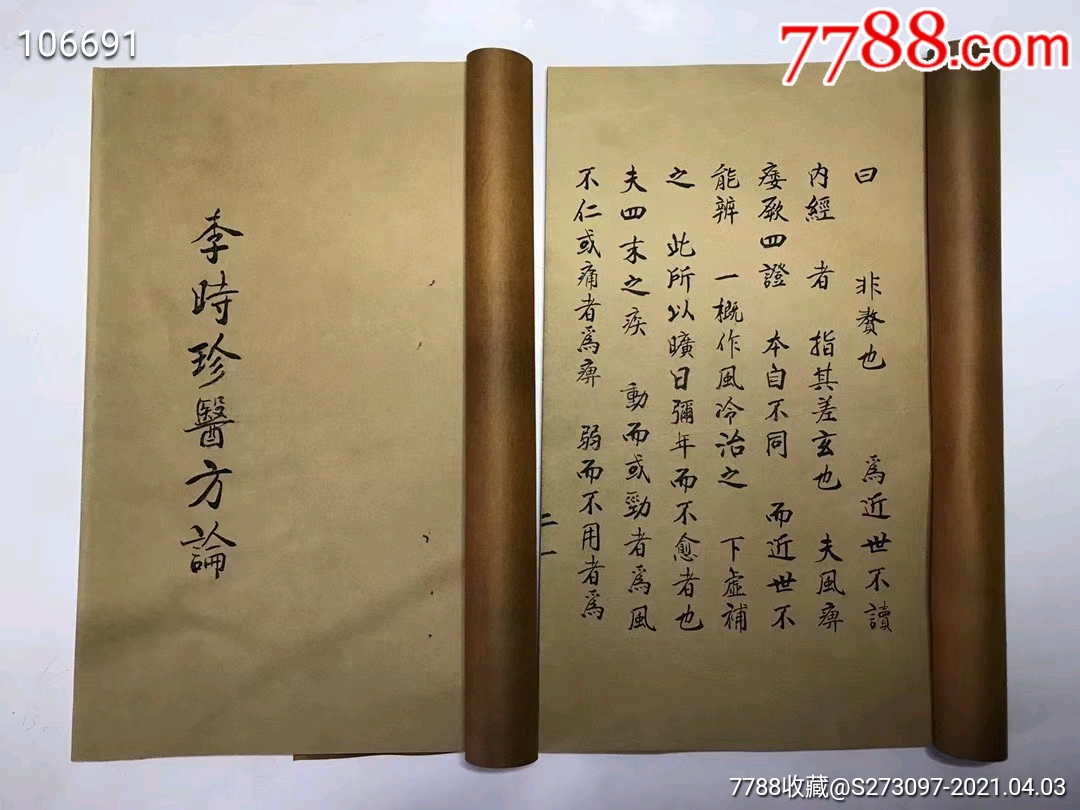 106691
7788.com
李時珍醫方論
曰 非贅也 爲近世不讀
内經 者 指其差玄也 夫風痹
痿厥四證 本自不同 而近世不
能辨 一概作風冷治之 下虛補
之 此所以曠日彌年而不愈者也
夫四末之疾 動而或勁者爲風
不仁或痛者爲痹 弱而不用者爲
二一
7788收藏@S273097-2021.04.03